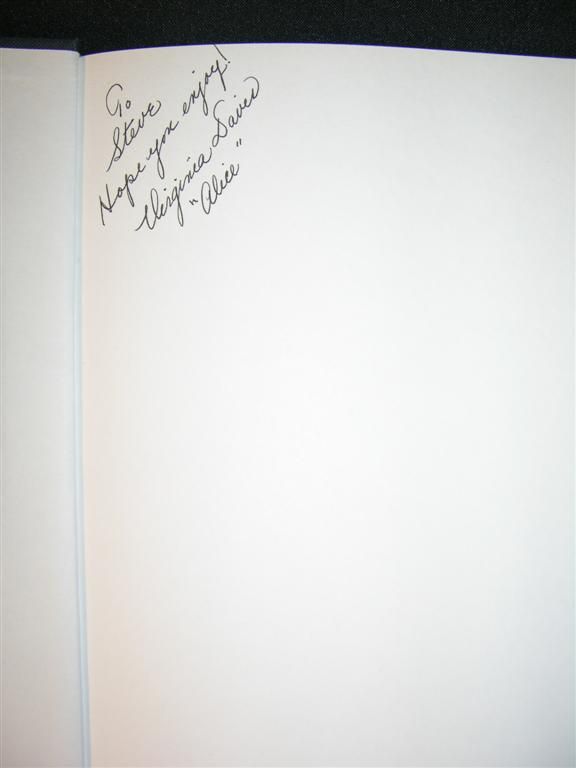 To
Steve
Hope you enjoy!
Virginia Davis
"Alice"